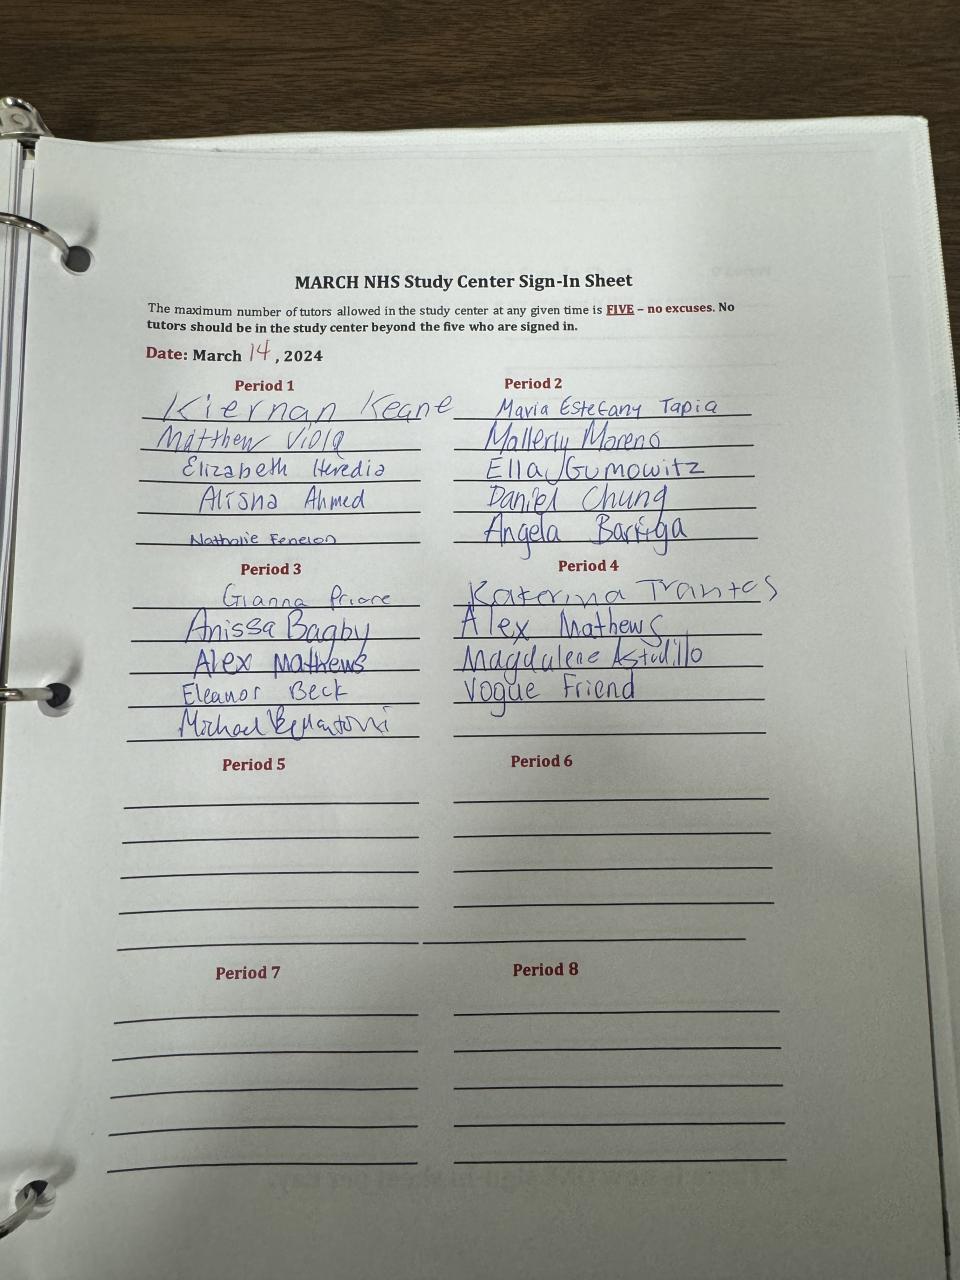 MARCH NHS Study Center Sign-In Sheet
The maximum number of tutors allowed in the study center at any given time is FIVE – no excuses. No
tutors should be in the study center beyond the five who are signed in.
Date: March 14, 2024
Period 1
Kiernan Keane
Matthew Viola
Elizabeth Heredia
Alisha Ahmed
Nathalie Fenelon
Period 2
Maria Estefany Tapia
Mallerly Moreno
Ella Gumowitz
Daniel Chung
Angela Barriga
Period 3
Gianna Priore
Anissa Bagby
Alex Mathews
Eleanor Beck
Michael Bellantoni
Period 4
Katerina Trantos
Alex Mathews
Magdalene Astudillo
Vogue Friend
Period 5
Period 6
Period 7
Period 8